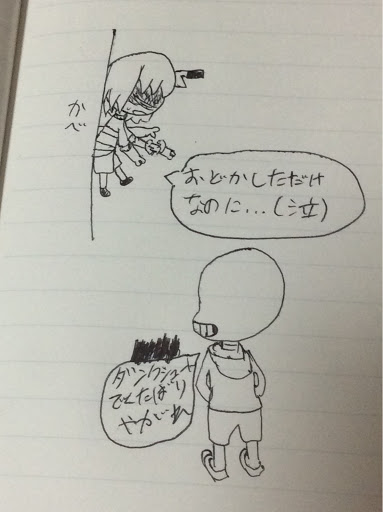 かべ
おどかしただけ
なのに...(泣)
ダンクシュートや
でくたばり
やがれ